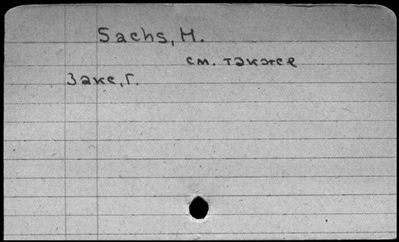 Sachs, H.
см. также
Закс, Г.